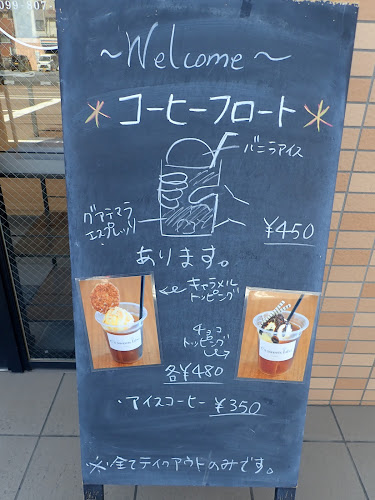 099-807
~Welcome~
コーヒーフロート
バニラアイス
グアテマラ
エスプレッソ
¥450
あります。
キャラメル
トッピング
チョコ
トッピング
各¥480
・アイスコーヒー ¥350
※全てテイクアウトのみです。